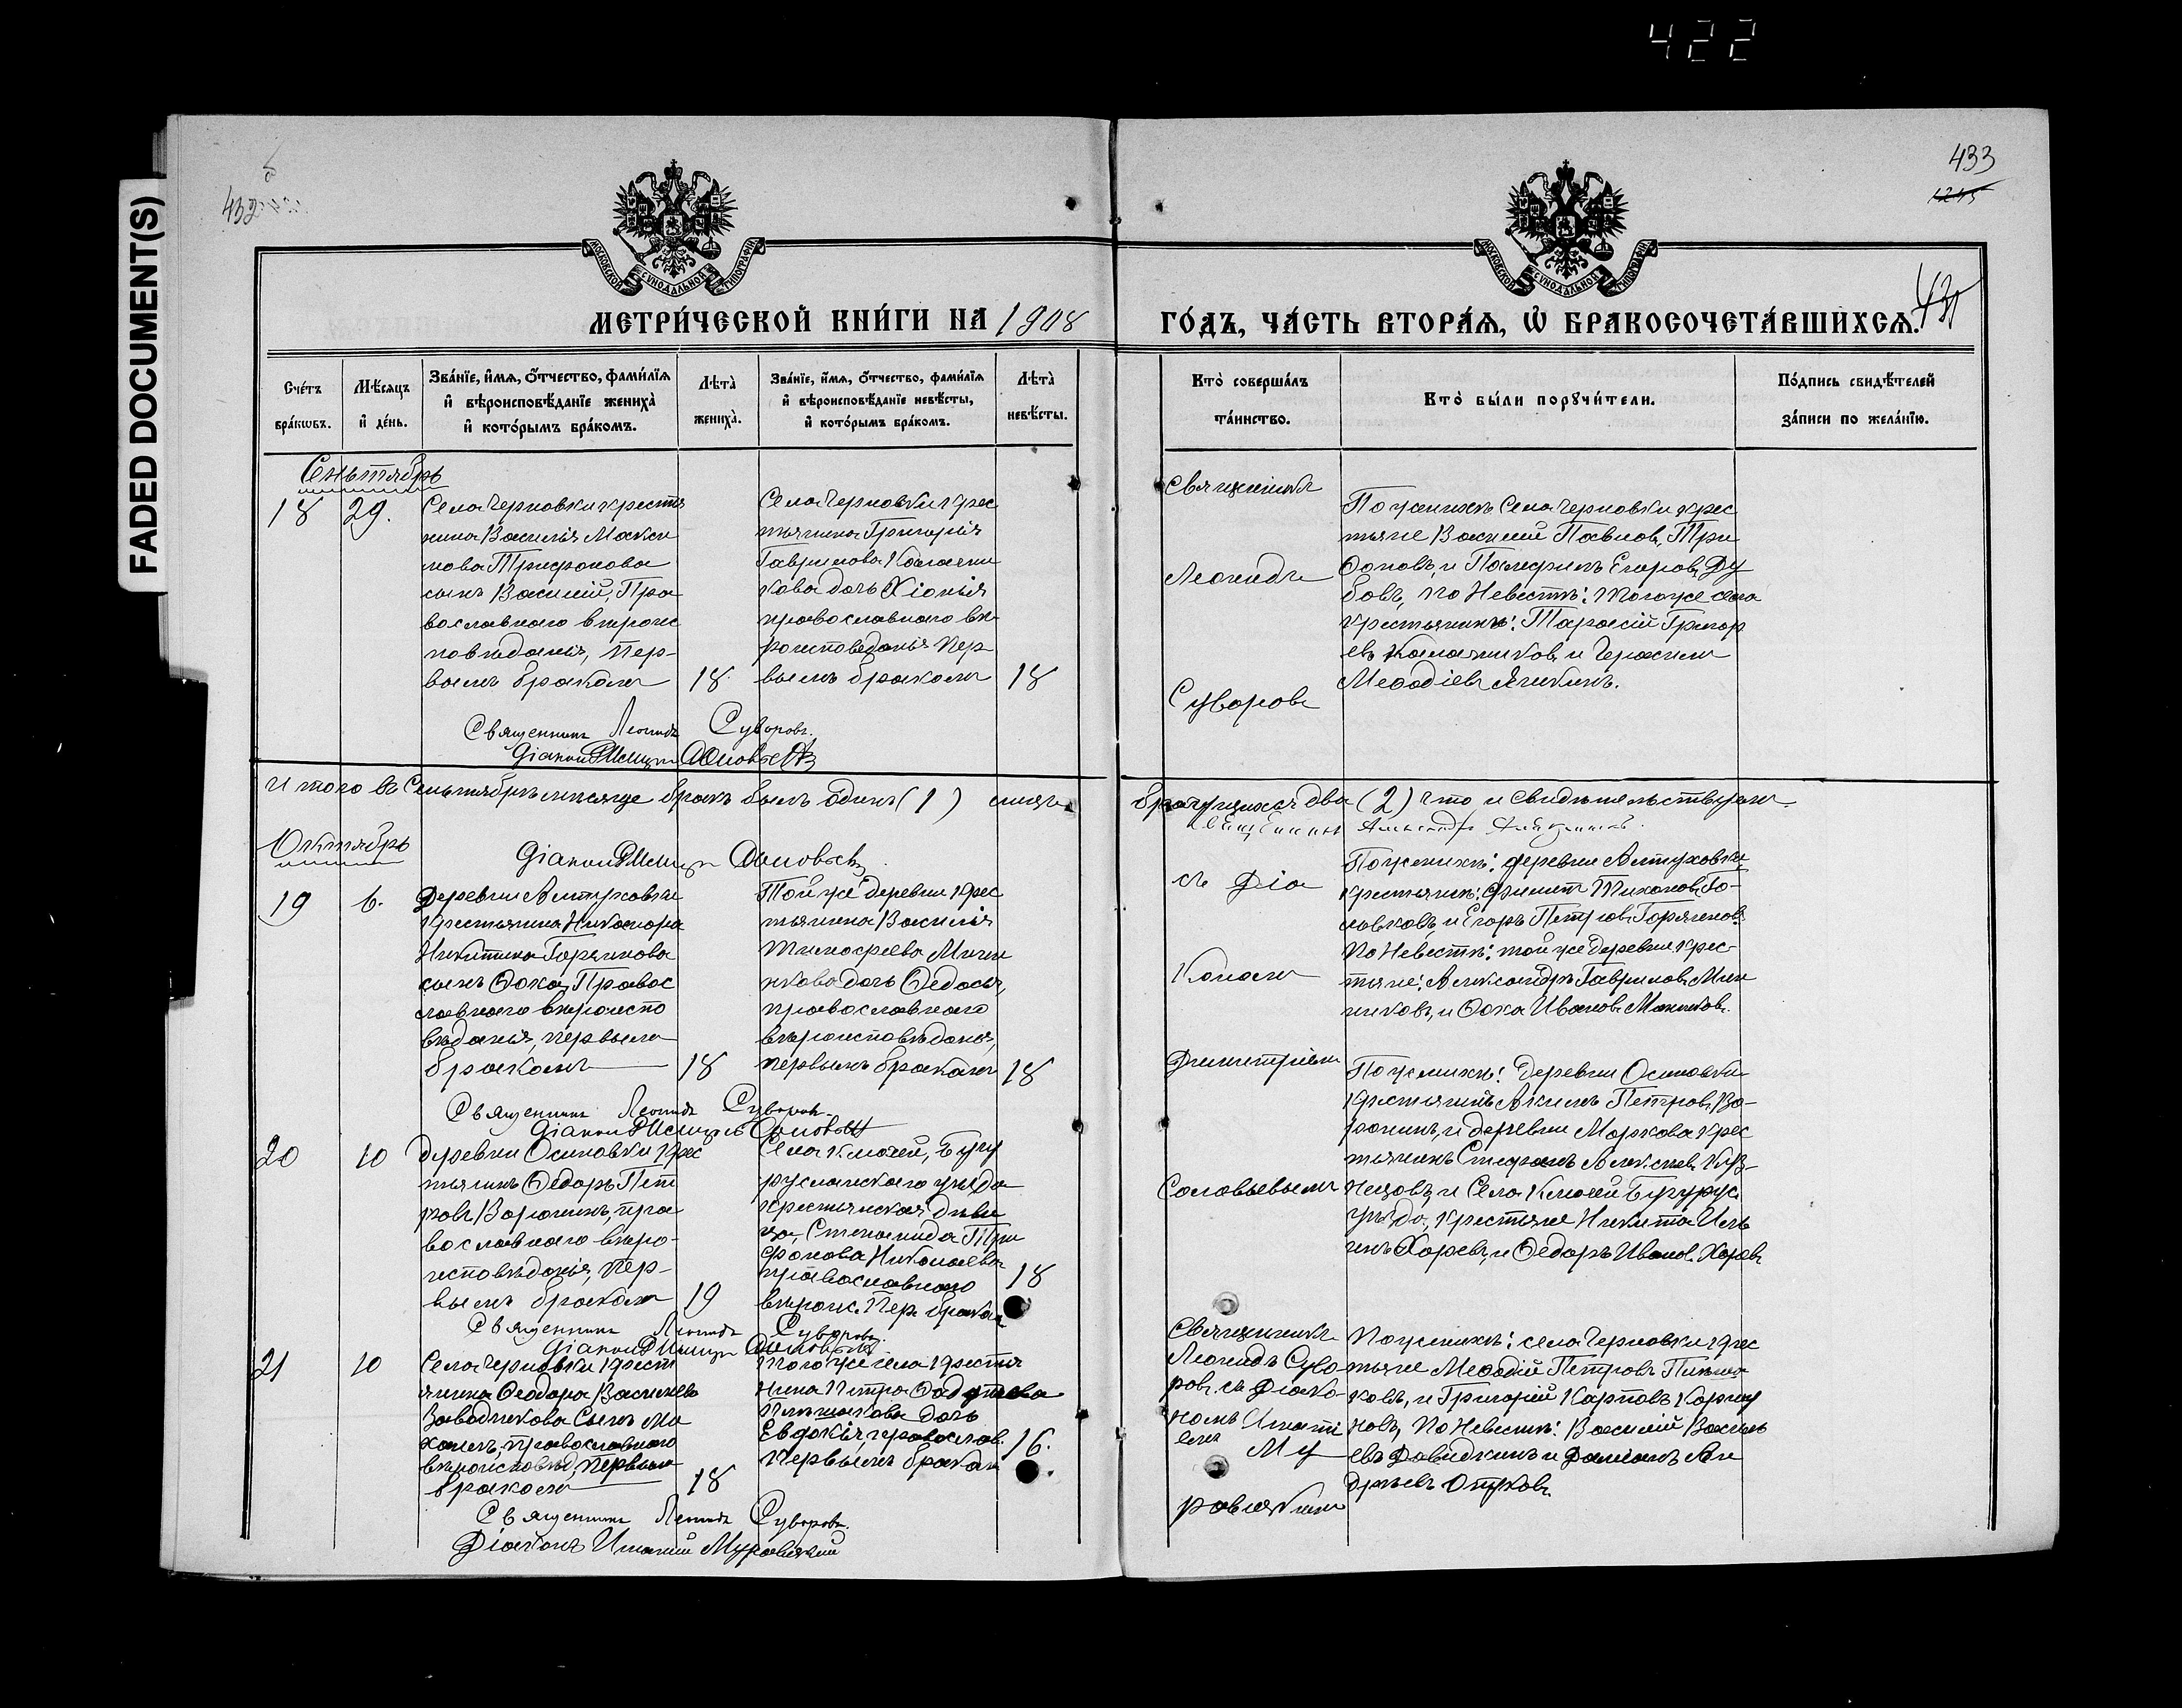 422
FADED DOCUMENT(S)
432
433
1245
МОСКОВСКОЙ СѴНОДАЛЬНОЙ ТИПОГРАФІИ
МОСКОВСКОЙ СѴНОДАЛЬНОЙ ТИПОГРАФІИ
МЕТРИ́ЧЕСКОЙ КНИ́ГИ НА 1908
ГО́ДЪ, ЧА́СТЬ ВТОРА́Я, Ѡ БРАКОСОЧЕТА́ВШИХСЯ.
Сче́тъ бра́кѡвъ.
Мѣ́сяцъ и҆ де́нь.
Зва́нїе, и҆́мя, ѻ҆́тчество, фами́лїя и҆ вѣроисповѣ́данїе жениха̀ и҆ кото́рымъ бра́комъ.
Лѣта̀ жениха̀.
Зва́нїе, и҆́мя, ѻ҆́тчество, фами́лїя и҆ вѣроисповѣ́данїе невѣ́сты, и҆ кото́рымъ бра́комъ.
Лѣта̀ невѣ́сты.
Кто̀ соверша́лъ та́инство.
Кто̀ бы́ли порꙋчи́тели.
По́дпись свидѣ́телей за́писи по жела́нїю.
Сентябрь
18 29.
Села Черновки крестья
нина Василія Макси
мова Трифонова
сынъ Василій, Пра
вославнаго вѣроис
повѣданія, пер-
вымъ бракомъ 18
Села Черновки крес
тьянина Григорія
Гаврилова Калачни
кова дочь Хіонія
православнаго вѣ
роисповеданія пер
вымъ бракомъ 18
Священникъ
Леонидъ
Суворовъ
По женихѣ Села Черновки крес
тьяне Василій Павлов, Три
фоновъ, и Памфилъ Егоровъ Ду
бовъ, по Невестѣ: того же села
крестьянинъ: Тарасій Григор
евъ Калачниковъ и Герасим
Меѳодіевъ Яшкинъ.
Священникъ Леонидъ Суворовъ.
Діаконъ Димитрій Соловьевъ
Итого въ Сентябрѣ мѣсяце бракъ былъ одинъ (1)
брачущихся два (2) что и свидѣтельствуемъ
Священникъ
Октябрь
Діаконъ Димитрій Соловьевъ
19 6.
Деревни Алтуховки
крестьянина Никанора
Никитина Горячкова
сынъ Ѳока, Правос
лавнаго вѣроиспо
вѣданія, первымъ
бракомъ 18
Той же деревни крес
тьянина Василія
Тимофеева Мини
нкова дочь Ѳедосья,
православнаго
вѣроисповѣданія,
первымъ бракомъ 18
съ Діа
кономъ
Димитріемъ
Соловьевымъ
По женихѣ: деревни Алтуховки
крестьянинъ: Филиппъ Тихонов Го-
ловковъ, и Егоръ Петров Горячковъ
по Невестѣ: той же деревни крес-
тьяне: Александръ Гаврилов Мин
никовъ, и Ѳока Ивановъ Маниковъ.
Священникъ Леонидъ Суворовъ.
Діаконъ Димитрій Соловьевъ
20 10
деревни Осиновки крес
тьянинъ Ѳедоръ Пет
ровъ Воронинъ, пра
вославнаго вѣро-
исповѣданія, пер-
вымъ бракомъ 19
Села Ключей, Бугу
русланскаго уѣзда
крестьянская дѣви
ца, Степанида Три
фонова Николаева
православнаго 18
вѣроис. пер. бракомъ
По женихѣ: Деревни Осиновки
крестьянинъ Акимъ Петров Во-
ронинъ, и деревни Моркова крес
тьянинъ Стефанъ Алексѣев Куз-
нецовъ, и Села Ключей Бугурус
уѣзда, крестьяне Никита Иль
инъ Харевъ, и Ѳедоръ Иванов Харовъ
Священникъ Леонидъ Суворовъ.
Діаконъ Димитрій Соловьевъ
21 10
Села Черновки крест
янина Ѳеодора Васильева
Заводчикова Сынъ Ма
православнаго
вѣроисповѣд. первымъ
бракомъ 18
Того же села крестья
нина Петра
дочь
Евдокія, православ. 16.
первымъ бракомъ
Священникъ
Леонидъ Суво
ровъ съ Діако-
номъ Игнаті
емъ Му
равскимъ
По женихѣ: села Черновки крес
тьяне Меѳодій Петровъ
ковъ, и Григорій Карповъ Коршу
новъ, по Невестѣ: Василій Василь
евъ Давидкинъ и Даміанъ Ан
дреевъ
Священникъ Леонидъ Суворовъ.
Діаконъ Игнатій Муравский